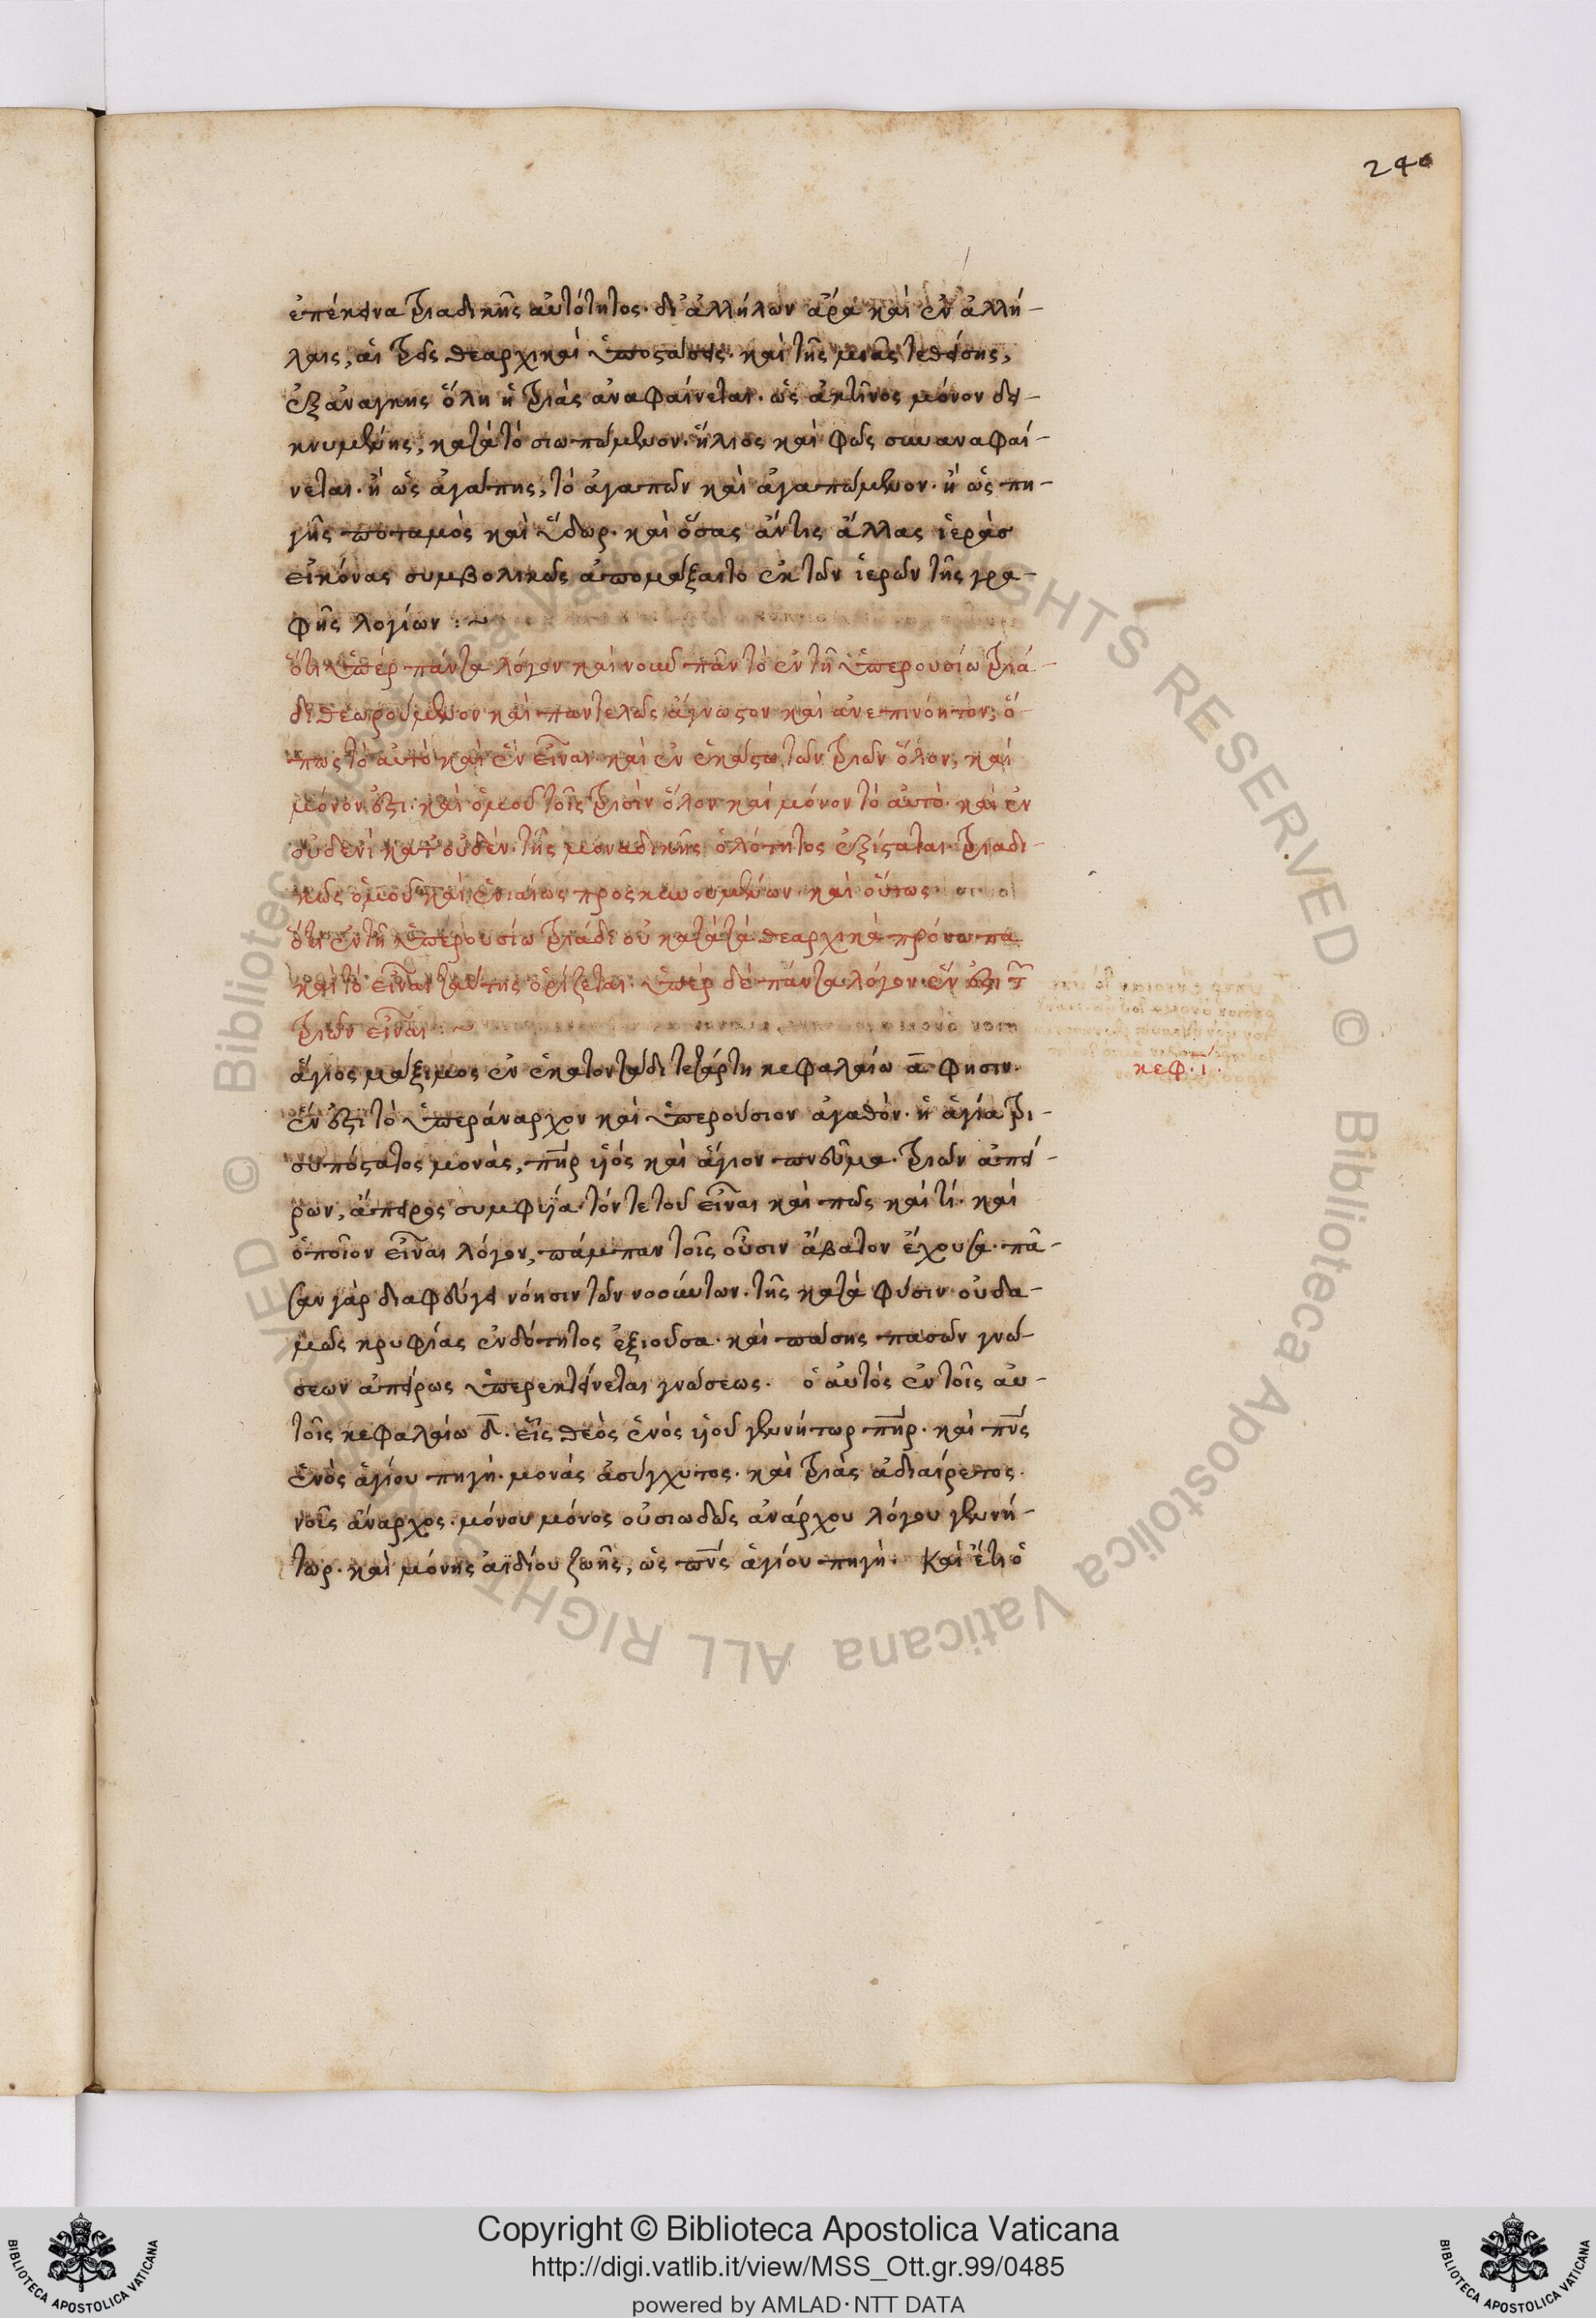 240
ἐπέκεινα τριαδικῆς αὐτότητος· δι' ἀλλήλων ἄρα καὶ ἐν ἀλλή-
λαις, αἱ τρεῖς θεαρχικαὶ ὑποστάσεις· καὶ τῆς μιᾶς τεθείσης,
ἐξανάγκης ὅλη ἡ τριὰς ἀναφαίνεται· ὡς ἀκτῖνος μόνον δει-
κνυμένης, κατὰ τὸ σιωπώμενον· ἥλιος καὶ φῶς συναναφαί-
νεται· ἢ ὡς ἀγάπης, τὸ ἀγαπῶν καὶ ἀγαπώμενον· ἢ ὡς πη-
γῆς ποταμὸς καὶ ὕδωρ· καὶ ὅσας ἄντις ἄλλας ἱερὰσ
εἰκόνας συμβολικῶς ἀπομάξαιτο ἐκ τῶν ἱερῶν τῆς γρα-
φῆς λογίων :~
ὅτι ὑπὲρ πάντα λόγον καὶ νοῦν πᾶν τὸ ἐν τῇ ὑπερουσίω τριά-
δι θεωρούμενον καὶ παντελῶς ἄγνωστον καὶ ἀνεπινόητον, ὅ-
πως τὸ αὐτὸ καὶ ἓν εἶναι καὶ ἐν ἑκάστω τῶν τριῶν ὅλον, καὶ
μόνον ἐστι· καὶ ὁμοῦ τοῖς τρισὶν ὅλον καὶ μόνον τὸ αὐτό· καὶ ἐν
οὐδενὶ κατ' οὐδὲν τῆς μοναδικῆς ὁλότητος ἐξίσταται τριαδι-
κῶς ὁμοῦ καὶ ἑνιαίως προσκυνουμένων· καὶ οὕτως·
ὅτι ἐν τῇ ὑπερουσίω τριάδι οὐ κατὰ τὰ θεαρχικὰ πρόσωπα
καὶ τὸ εἶναι ταύτης ὁρίζεται· ὑπὲρ δὲ πάντα λόγον ἕν ἐστι τ
τριῶν εἶναι :~
ἅγιος μάξιμος ἐν ἑκατοντάδι τετάρτη κεφαλαίω α φησιν·
κεφ. ι.
ἕν ἐστι τὸ ὑπεράναρχον καὶ ὑπερούσιον ἀγαθόν· ἡ ἁγία τρι-
συπόστατος μονάς, πηρ υἱὸς καὶ ἅγιον πνεῦμα· τριῶν ἀπεί-
ρων, ἄπειρος συμφυΐα· τόν τε τοῦ εἶναι καὶ πῶς καὶ τί· καὶ
ὁποῖον εἶναι λόγον, πάμπαν τοῖς οὖσιν ἄβατον ἔχουσα· πᾶ-
σαν γὰρ διαφεύγει νόησιν τῶν νοούντων· τῆς κατὰ φύσιν οὐδα-
μῶς κρυφίας ἐνδότητος ἐξιοῦσα· καὶ πάσης πασῶν γνώ-
σεων ἀπείρως ὑπερεκτείνεται γνώσεως. ὁ αὐτὸς ἐν τοῖς αὐ-
τοῖς κεφαλαίω δ. εἷς θεὸς ἑνὸς υἱοῦ γεννήτωρ πηρ· καὶ πνς
ἑνὸς ἁγίου πηγή· μονὰς ἀσύγχυτος· καὶ τριὰς ἀδιαίρετος·
νοῦς ἄναρχος· μόνου μόνος οὐσιωδῶς ἀνάρχου λόγου γεννή-
τωρ· καὶ μόνης ἀϊδίου ζωῆς, ὡς πνς ἁγίου πηγή· Καὶ ἔτι ὁ
Copyright © Biblioteca Apostolica Vaticana
http://digi.vatlib.it/view/MSS_Ott.gr.99/0485
powered by AMLAD·NTT DATA